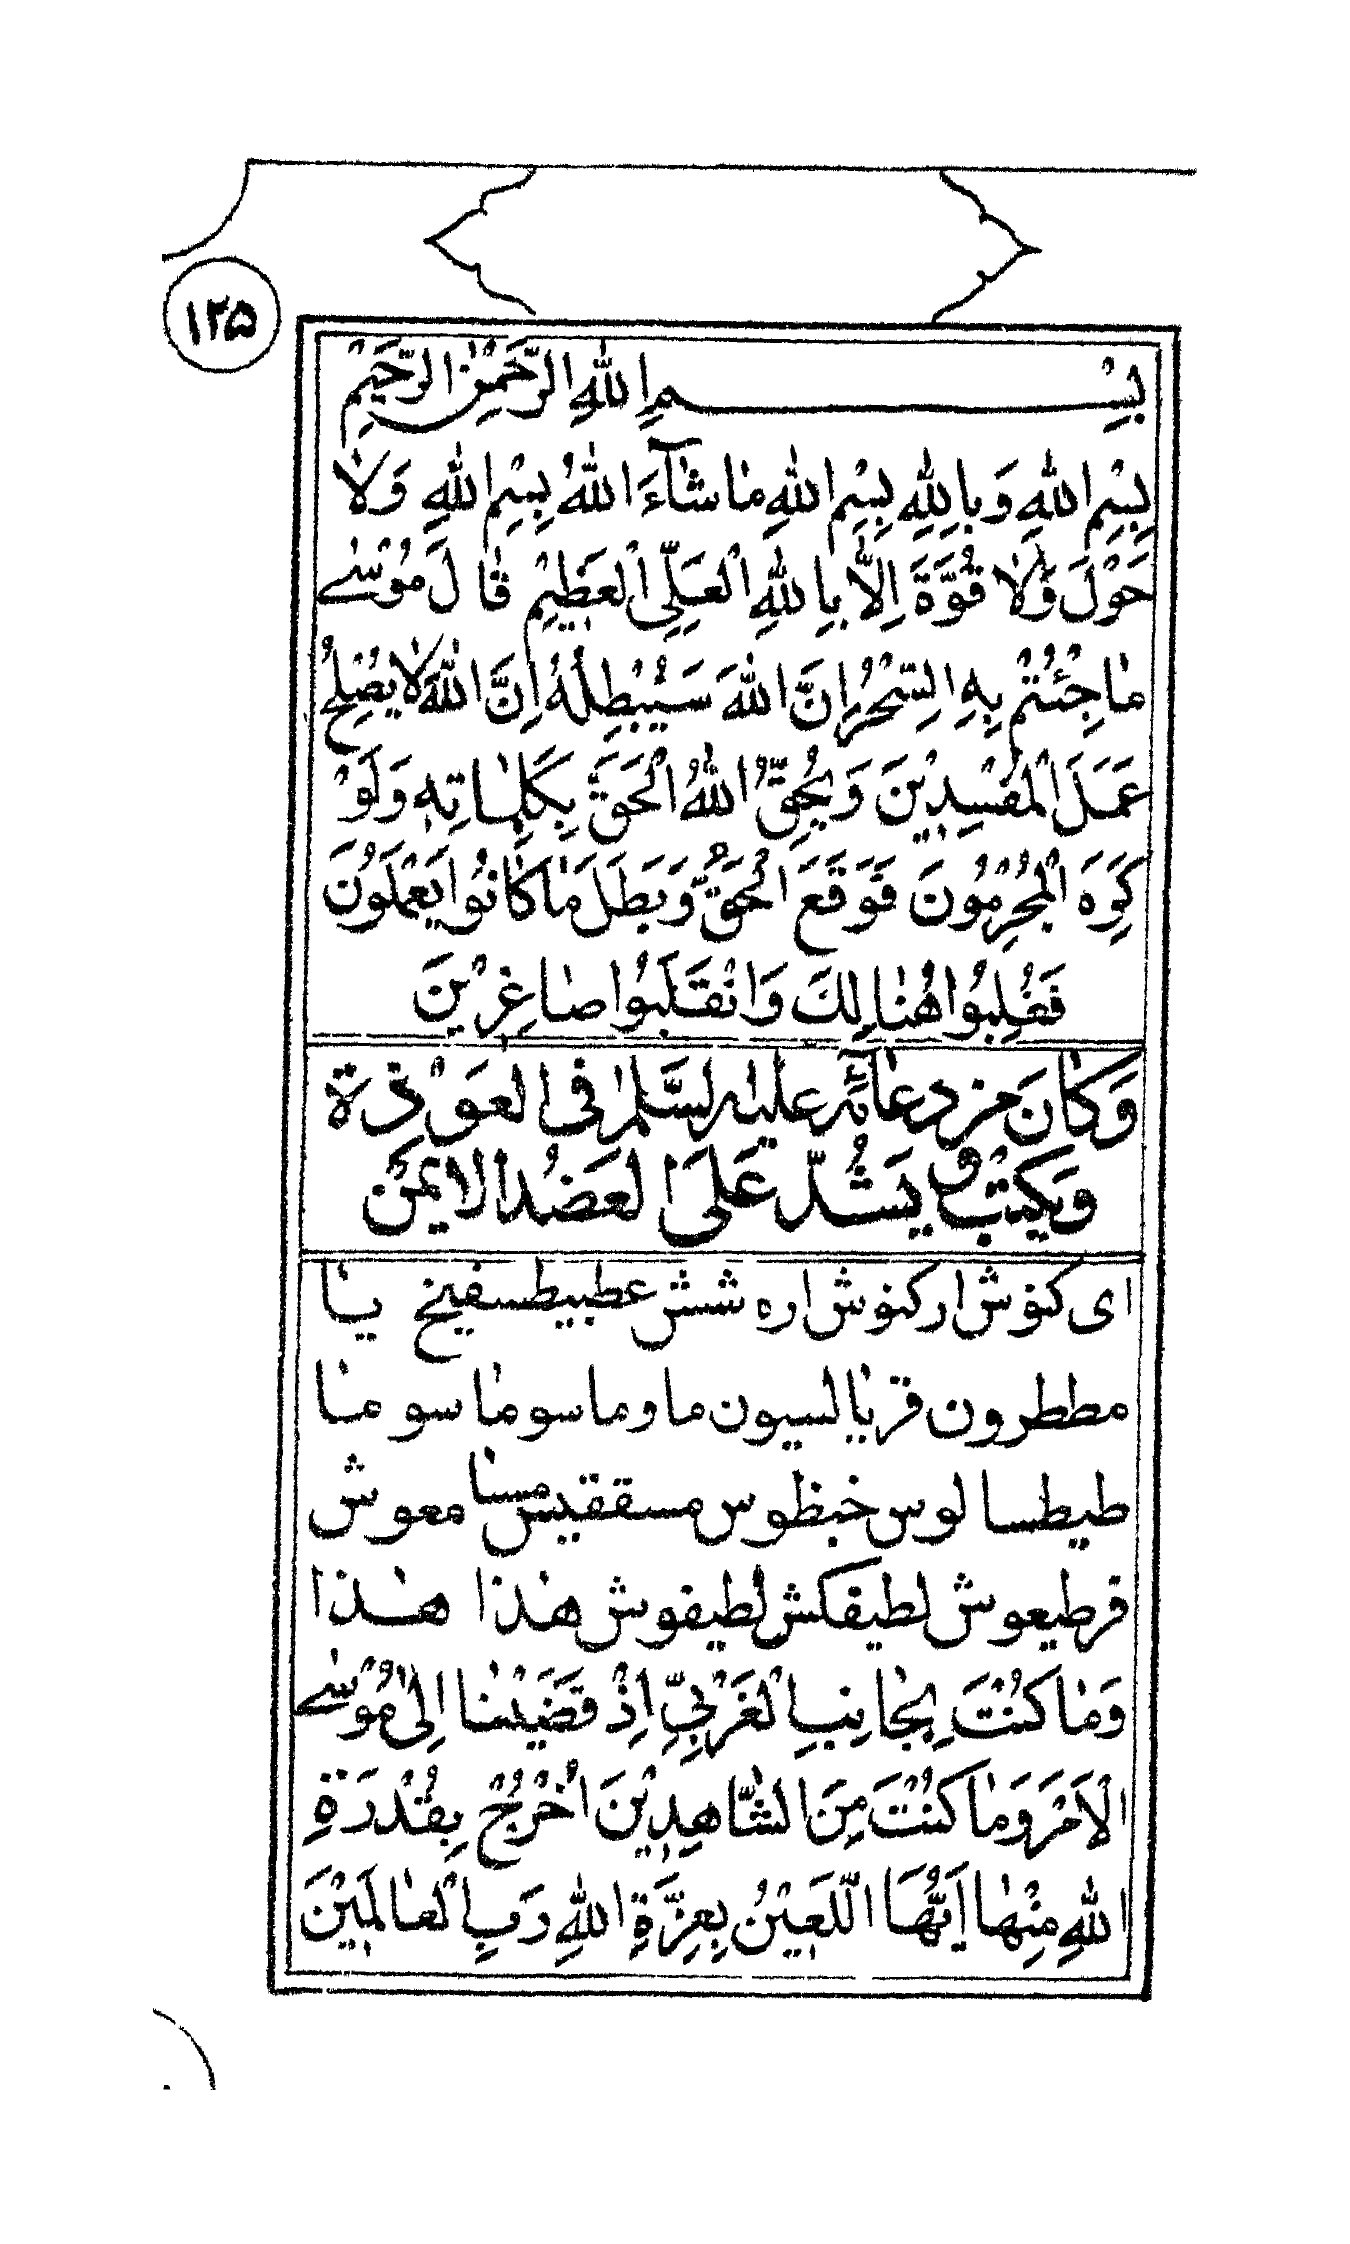 ۱۲۵
بِسْمِ اللّٰهِ الرَّحْمٰنِ الرَّحِيْمِ
بِسْمِ اللّٰهِ وَبِاللّٰهِ بِسْمِ اللّٰهِ مٰا شٰآءَ اللّٰهُ بِسْمِ اللّٰهِ وَلٰا
حَوْلَ وَلٰا قُوَّةَ اِلّٰا بِاللّٰهِ الْعَلِيِّ الْعَظِيْمِ قٰالَ مُوْسٰى
مٰا جِئْتُمْ بِهِ السِّحْرُ اِنَّ اللّٰهَ سَيُبْطِلُهُ اِنَّ اللّٰهَ لٰا يُصْلِحُ
عَمَلَ الْمُفْسِدِيْنَ وَيُحِقُّ اللّٰهُ الْحَقَّ بِكَلِمٰاتِهٖ وَلَوْ
كَرِهَ الْمُجْرِمُوْنَ فَوَقَعَ الْحَقُّ وَبَطَلَ مٰا كٰانُوا يَعْمَلُوْنَ
فَغُلِبُوا هُنٰالِكَ وَانْقَلَبُوا صٰاغِرِيْنَ
وَكٰانَ مِنْ دعٰائِه عليه السَّلٰم فى العَوْذة
وَيكتب و يَشُدّ عَلَى العَضُد الايمَن
اى كنوش اركنوش اره شش عطبيطسفيخ يٰا
مططرون قريٰالسيون ما وما سومٰا سو منٰا
طيطسا لوس خبظوس مسققيس مسٰا معوش
قرطيعوش لطيفكش لطيفوش هٰذا هٰذا
وَمٰا كُنْتَ بِجٰانِبِ الْغَرْبِيِّ اِذْ قَضَيْنٰا اِلٰى مُوْسٰى
الْاَمْرَ وَمٰا كُنْتَ مِنَ الشّٰاهِدِيْنَ اُخْرُجْ بِقُدْرَةِ
اللّٰهِ مِنْهٰا اَيُّهَا اللَّعِيْنُ بِعِزَّةِ اللّٰهِ رَبِ الْعٰالَمِيْنَ